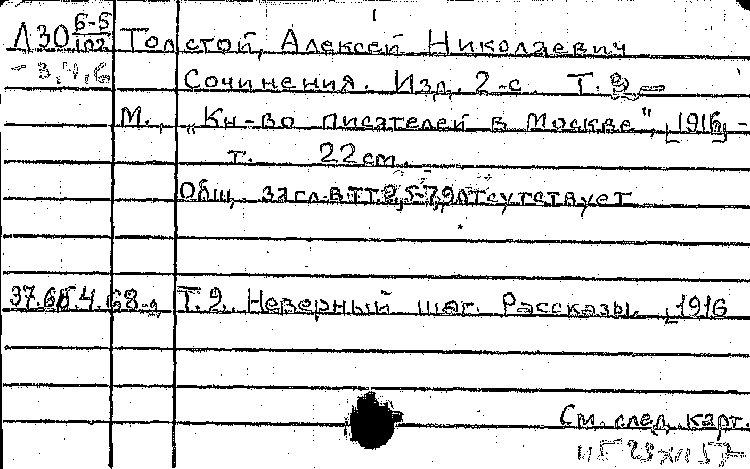 Л30 Б-5/102 Толстой, Алексей Николаевич
-3,4,6 Сочинения. Изд. 2-е. Т.
М., „Кн-во писателей в Москве", [1916] -
т. 22 см.
Общ. загл. в тт. 2, 5-7, 9 отсутствует
Т. 9. Неверный шаг. Рассказы. [1916
См. след. карт.